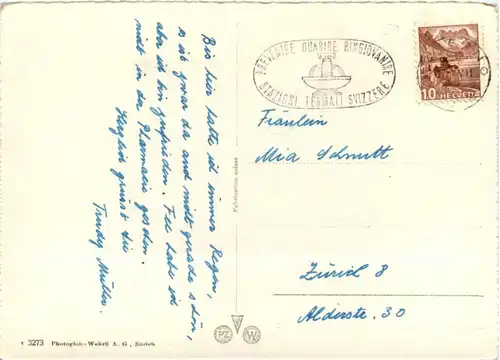 Bis hier hatte ich immer Regen,
es ist zwar da auch nicht gerade schön,
aber ich bin zufrieden. Tee habe ich
nicht in der Pharmacie
Herzlich grüsst Sie
Trudy Müller.
PREVENIRE GUARIRE RINGIOVANIRE
STAZIONI TERMALI SVIZZERE
10 HELVETIA
Fräulein
Mia Schmitt
Zürich 8
Alderstr. 30
Fabrication suisse
V 3273 Photoglob-Wehrli A. G., Zürich
PZ W